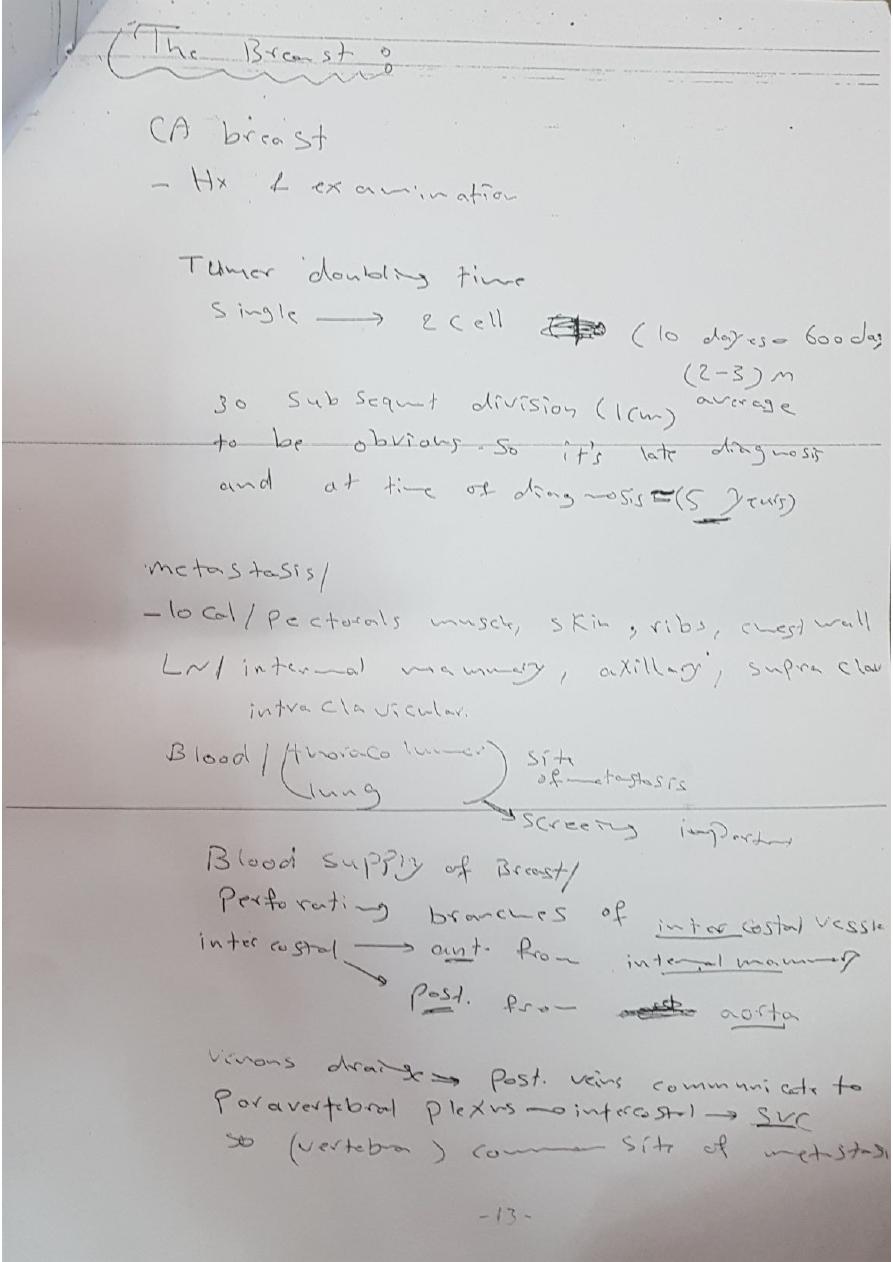 The Breast :
CA breast
- Hx & examination
Tumer doubling time
Single → 2 cell (10 dayes - 600 day
(2-3) m
average
30 subsequt division (1cm)
to be obvious. So it's late diagnosis
and at time of diagnosis = (5 years)
metastasis/
- local / pectorals muscle, skin, ribs, chest wall
LN/ internal mammary, axillary, supra clav
infra clavicular.
Blood / (thoraco lumer) site
lung of metastasis
→ screeing important
Blood supply of Breast/
Perforating branches of intercostal vessle
intercostal → ant. from internal mammary
→ post. from aorta
Vinous drainge → post. veins communicate to
Paravertebral plexus → intercostal → SVC
so (vertebra) common site of metstasi
-13-